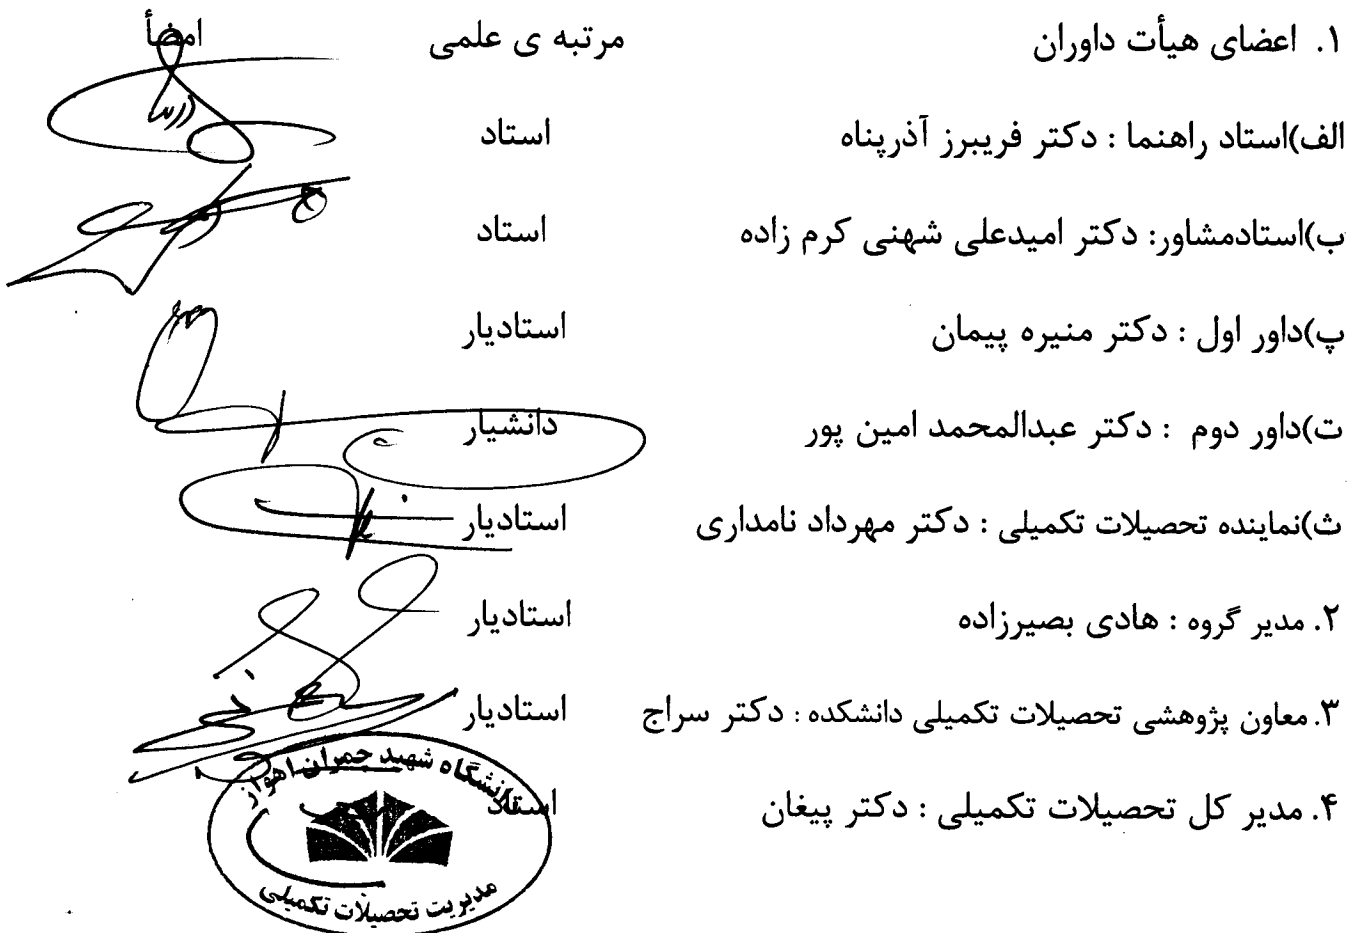 ۱. اعضای هیأت داوران مرتبه ی علمی امضأ
الف)استاد راهنما : دکتر فریبرز آذرپناه استاد
ب)استادمشاور: دکتر امیدعلی شهنی کرم زاده استاد
پ)داور اول : دکتر منیره پیمان استادیار
ت)داور دوم : دکتر عبدالمحمد امین پور دانشیار
ث)نماینده تحصیلات تکمیلی : دکتر مهرداد نامداری استادیار
۲. مدیر گروه : هادی بصیرزاده استادیار
۳. معاون پژوهشی تحصیلات تکمیلی دانشکده : دکتر سراج استادیار
۴. مدیر کل تحصیلات تکمیلی : دکتر پیغان استاد
دانشگاه شهید چمران اهواز
مدیریت تحصیلات تکمیلی